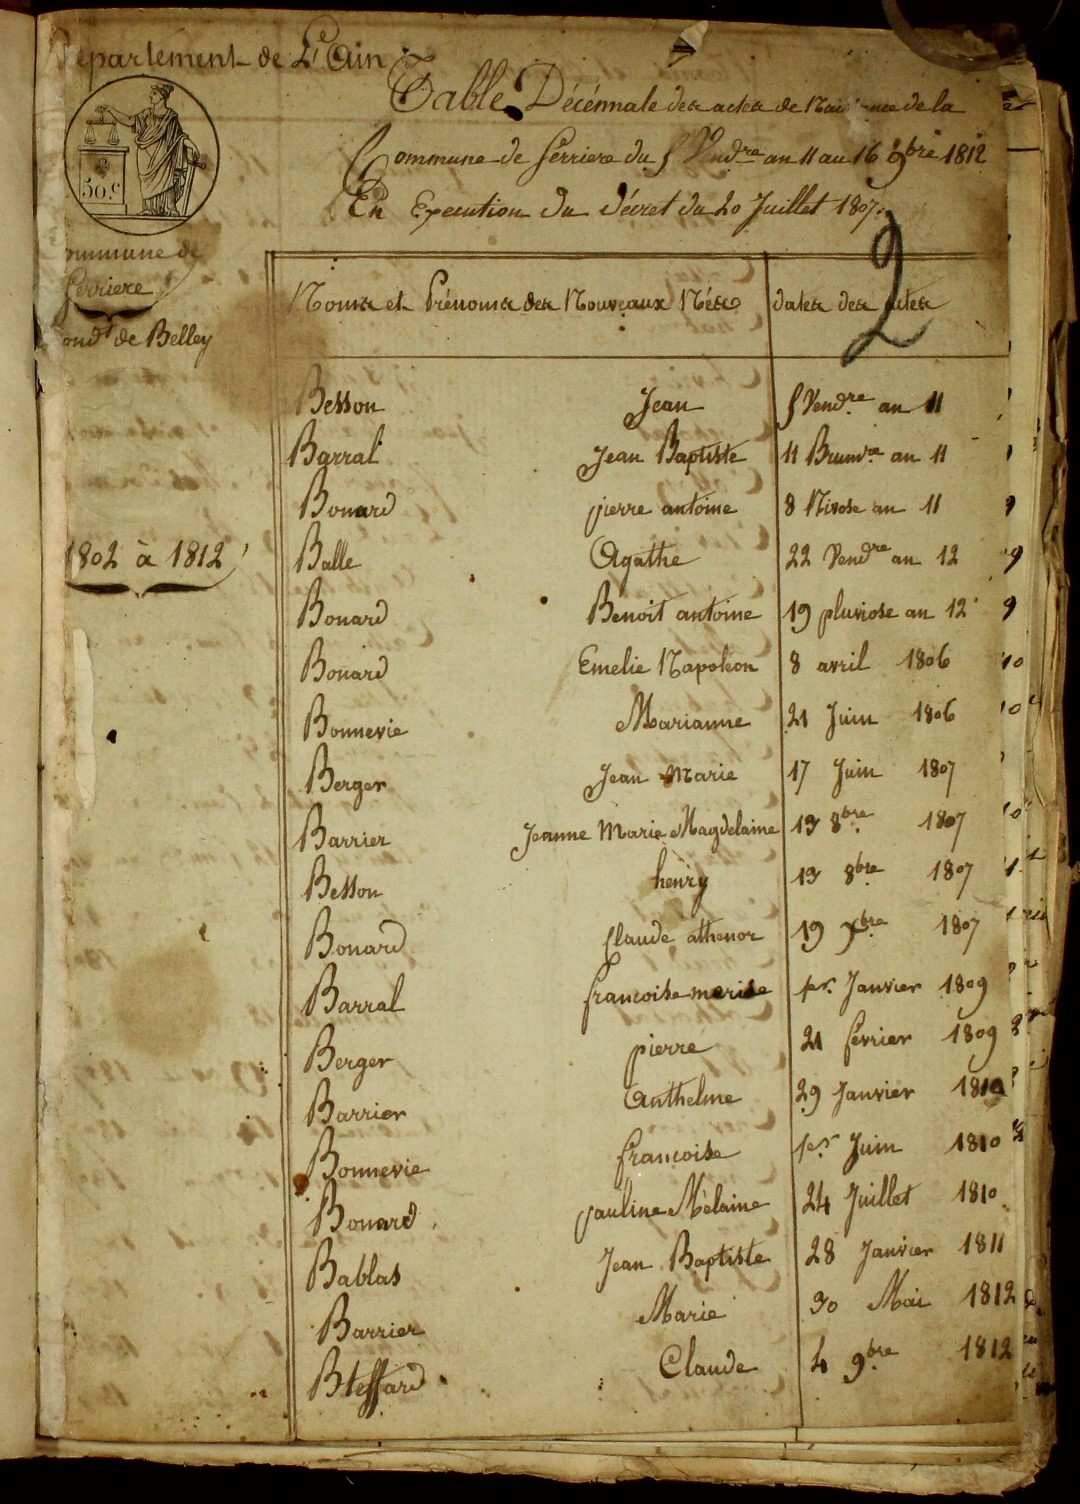 Département de L'Ain
Table Décénnale des actes de Naissance de la
Commune de Serriere du 5 Vendre an 11 au 16 9bre 1812
En Execution du Décret du 20 Juillet 1807.
50.c
ommune de
Serriere
ond.t de Belley
1802 à 1812
2
Noms et Prénoms des Nouveaux Nés dates des actes
Besson Jean 5 Vendre an 11
Barral Jean Baptiste 11 Brumre an 11
Bonard pierre antoine 8 Nivose an 11
Balle Agathe 22 Vendre an 12
Bonard Benoit antoine 19 pluviose an 12
Bonard Emelie Napoleon 8 avril 1806
Bonnevie Marianne 21 Juin 1806
Berger Jean Marie 17 Juin 1807
Barrier Jeanne Marie Magdelaine 13 8bre 1807
Besson henry 13 8bre 1807
Bonard Claude athenor 19 Xbre 1807
Barral francoise merise 1er. Janvier 1809
Berger pierre 21 fevrier 1809
Barrier Anthelme 29 Janvier 1810
Bonnevie francoise 1er Juin 1810
Bonard pauline Mélaine 24 Juillet 1810
Bablas Jean Baptiste 28 Janvier 1811
Barrier Marie 30 Mai 1812
Bteffard Claude 4 9bre 1812